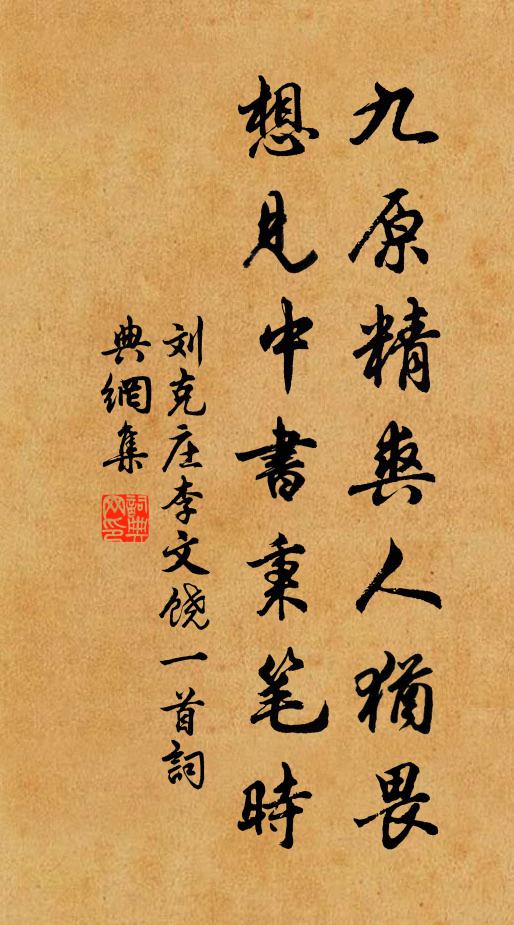 九原精爽人猶畏
想见中書秉笔時
刘克庄李文饶一首詞
典網集
詞典
网印